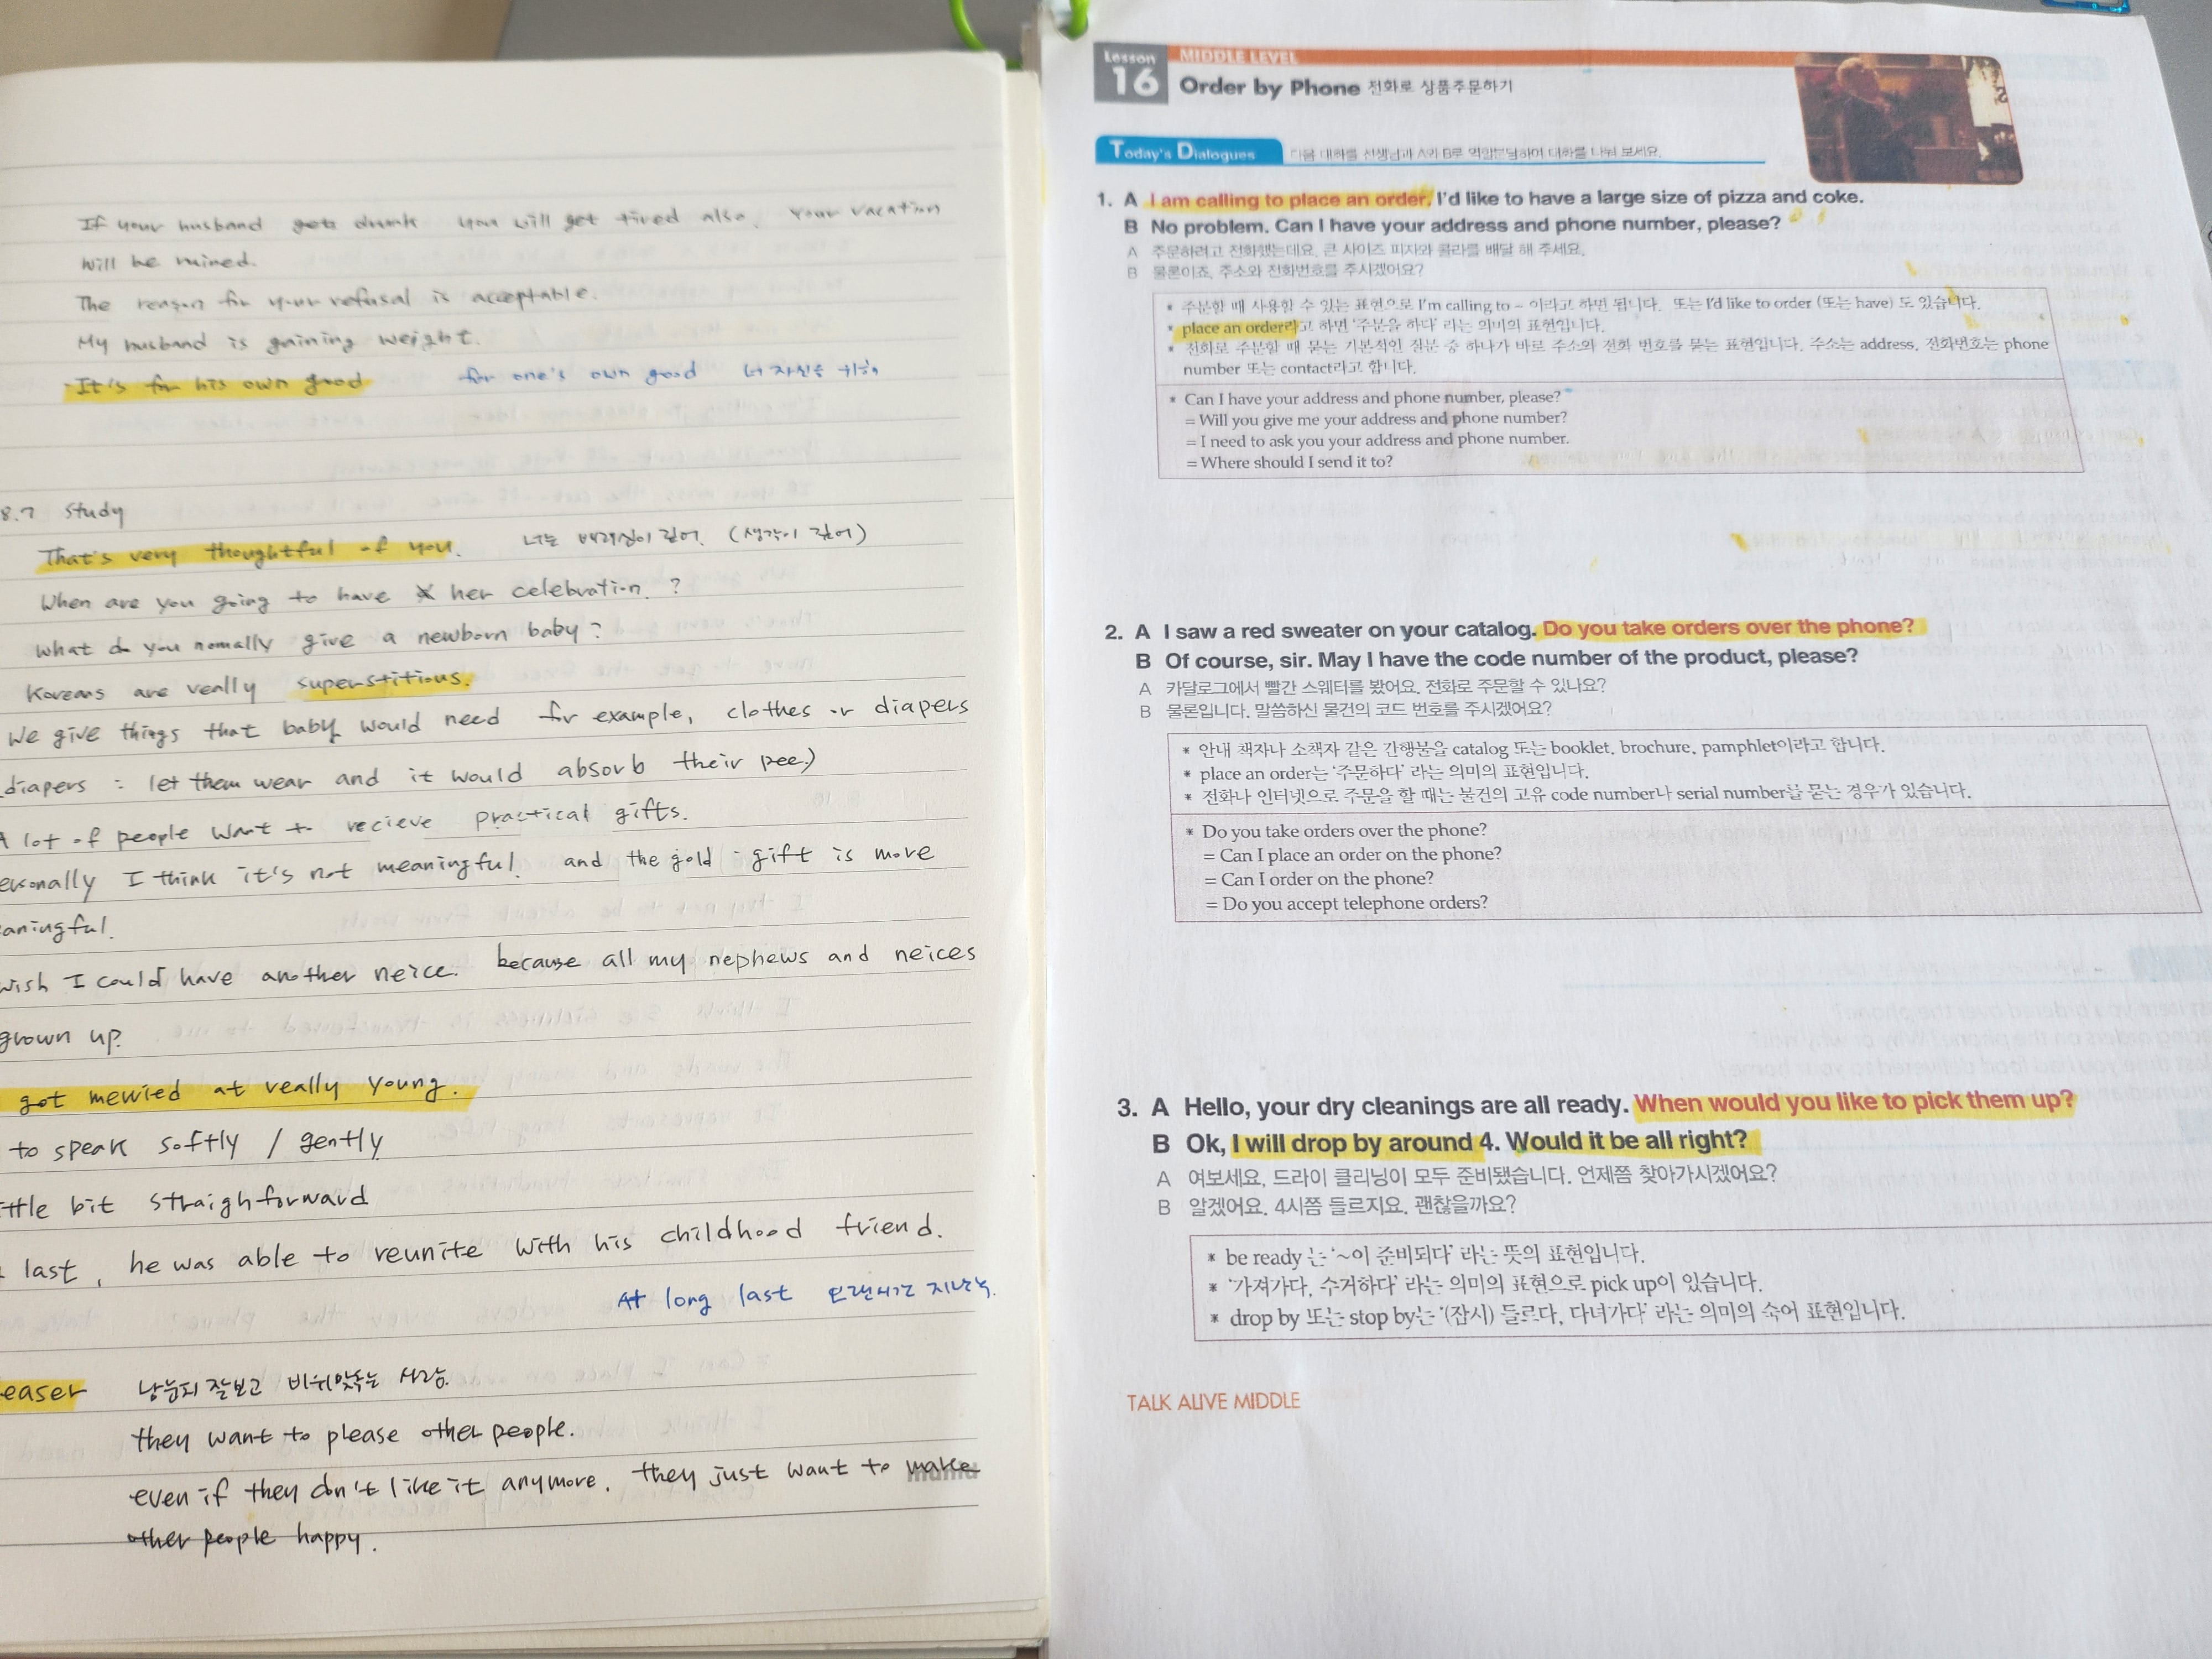 If your husband gets drunk you will get tired also. Your vacation
will be ruined.
The reason for your refusal is acceptable.
My husband is gaining weight.
It's for his own good for one's own good 너 자신을 위해
8.7 Study
That's very thoughtful of you. 너는 배려심이 깊어. (생각이 깊어)
When are you going to have her celebration ?
What do you nomally give a newborn baby?
Koreans are really superstitious.
We give things that baby would need for example, clothes or diapers
diapers : let them wear and it would absorb their pee.)
A lot of people want to recieve practical gifts.
ersonally I think it's not meaningful. and the gold gift is more
aningful.
wish I could have another neice. because all my nephews and neices
grown up.
got merried at really young.
to speak softly / gently
ttle bit straighforward
last, he was able to reunite with his childhood friend.
At long last 오랜시간 지난후.
easer 남눈치 잘보고 비위맞추는 사람.
they want to please other people.
even if they don't like it anymore. they just want to make
other people happy.
Lesson
16
MIDDLE LEVEL
Order by Phone 전화로 상품주문하기
Today's Dialogues 다음 대화를 선생님과 A와 B로 역할분담하여 대화를 나눠 보세요.
1. A I am calling to place an order. I'd like to have a large size of pizza and coke.
B No problem. Can I have your address and phone number, please?
A 주문하려고 전화했는데요. 큰 사이즈 피자와 콜라를 배달 해 주세요.
B 물론이죠. 주소와 전화번호를 주시겠어요?
* 주문할 때 사용할 수 있는 표현으로 I'm calling to ~ 이라고 하면 됩니다. 또는 I'd like to order (또는 have) 도 있습니다.
* place an order라고 하면 '주문을 하다' 라는 의미의 표현입니다.
* 전화로 주문할 때 묻는 기본적인 질문 중 하나가 바로 주소와 전화 번호를 묻는 표현입니다. 주소는 address, 전화번호는 phone
number 또는 contact라고 합니다.
* Can I have your address and phone number, please?
= Will you give me your address and phone number?
= I need to ask you your address and phone number.
= Where should I send it to?
2. A I saw a red sweater on your catalog. Do you take orders over the phone?
B Of course, sir. May I have the code number of the product, please?
A 카달로그에서 빨간 스웨터를 봤어요. 전화로 주문할 수 있나요?
B 물론입니다. 말씀하신 물건의 코드 번호를 주시겠어요?
* 안내 책자나 소책자 같은 간행물을 catalog 또는 booklet, brochure, pamphlet이라고 합니다.
* place an order는 '주문하다' 라는 의미의 표현입니다.
* 전화나 인터넷으로 주문을 할 때는 물건의 고유 code number나 serial number를 묻는 경우가 있습니다.
* Do you take orders over the phone?
= Can I place an order on the phone?
= Can I order on the phone?
= Do you accept telephone orders?
3. A Hello, your dry cleanings are all ready. When would you like to pick them up?
B Ok, I will drop by around 4. Would it be all right?
A 여보세요, 드라이 클리닝이 모두 준비됐습니다. 언제쯤 찾아가시겠어요?
B 알겠어요. 4시쯤 들르지요. 괜찮을까요?
* be ready 는 '~이 준비되다' 라는 뜻의 표현입니다.
* '가져가다, 수거하다' 라는 의미의 표현으로 pick up이 있습니다.
* drop by 또는 stop by는 '(잠시) 들르다, 다녀가다' 라는 의미의 숙어 표현입니다.
TALK ALIVE MIDDLE